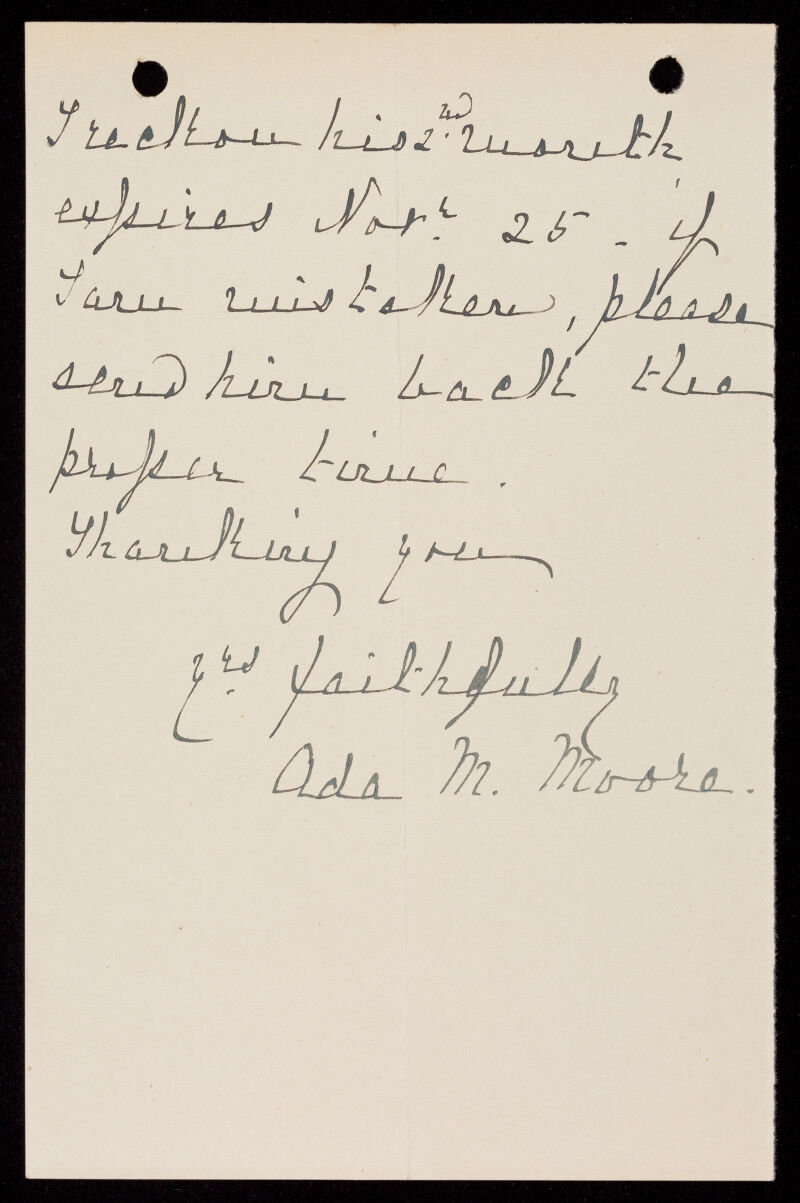 I reckon his 2nd. month
expires Novr. 25 - if
I am mistaken, please
send him back the
proper time.
Thanking you
yrs. faithfully
Ada M. Moore.